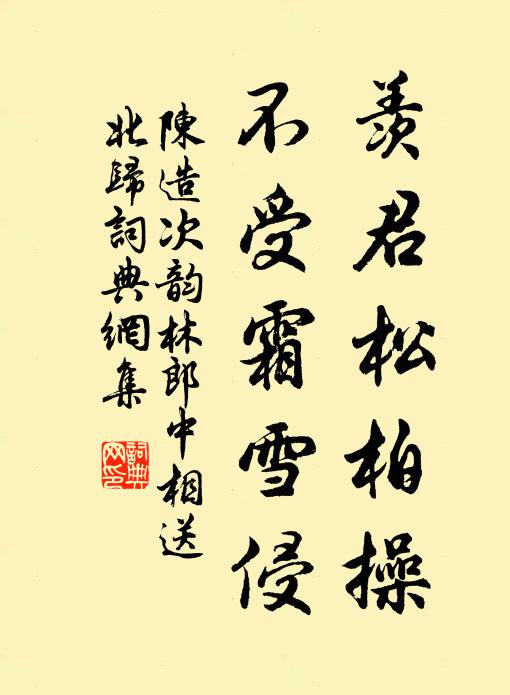 羨君松柏操
不受霜雪侵
陳造次韵林郎中相送
北歸詞典網集
詞典網印